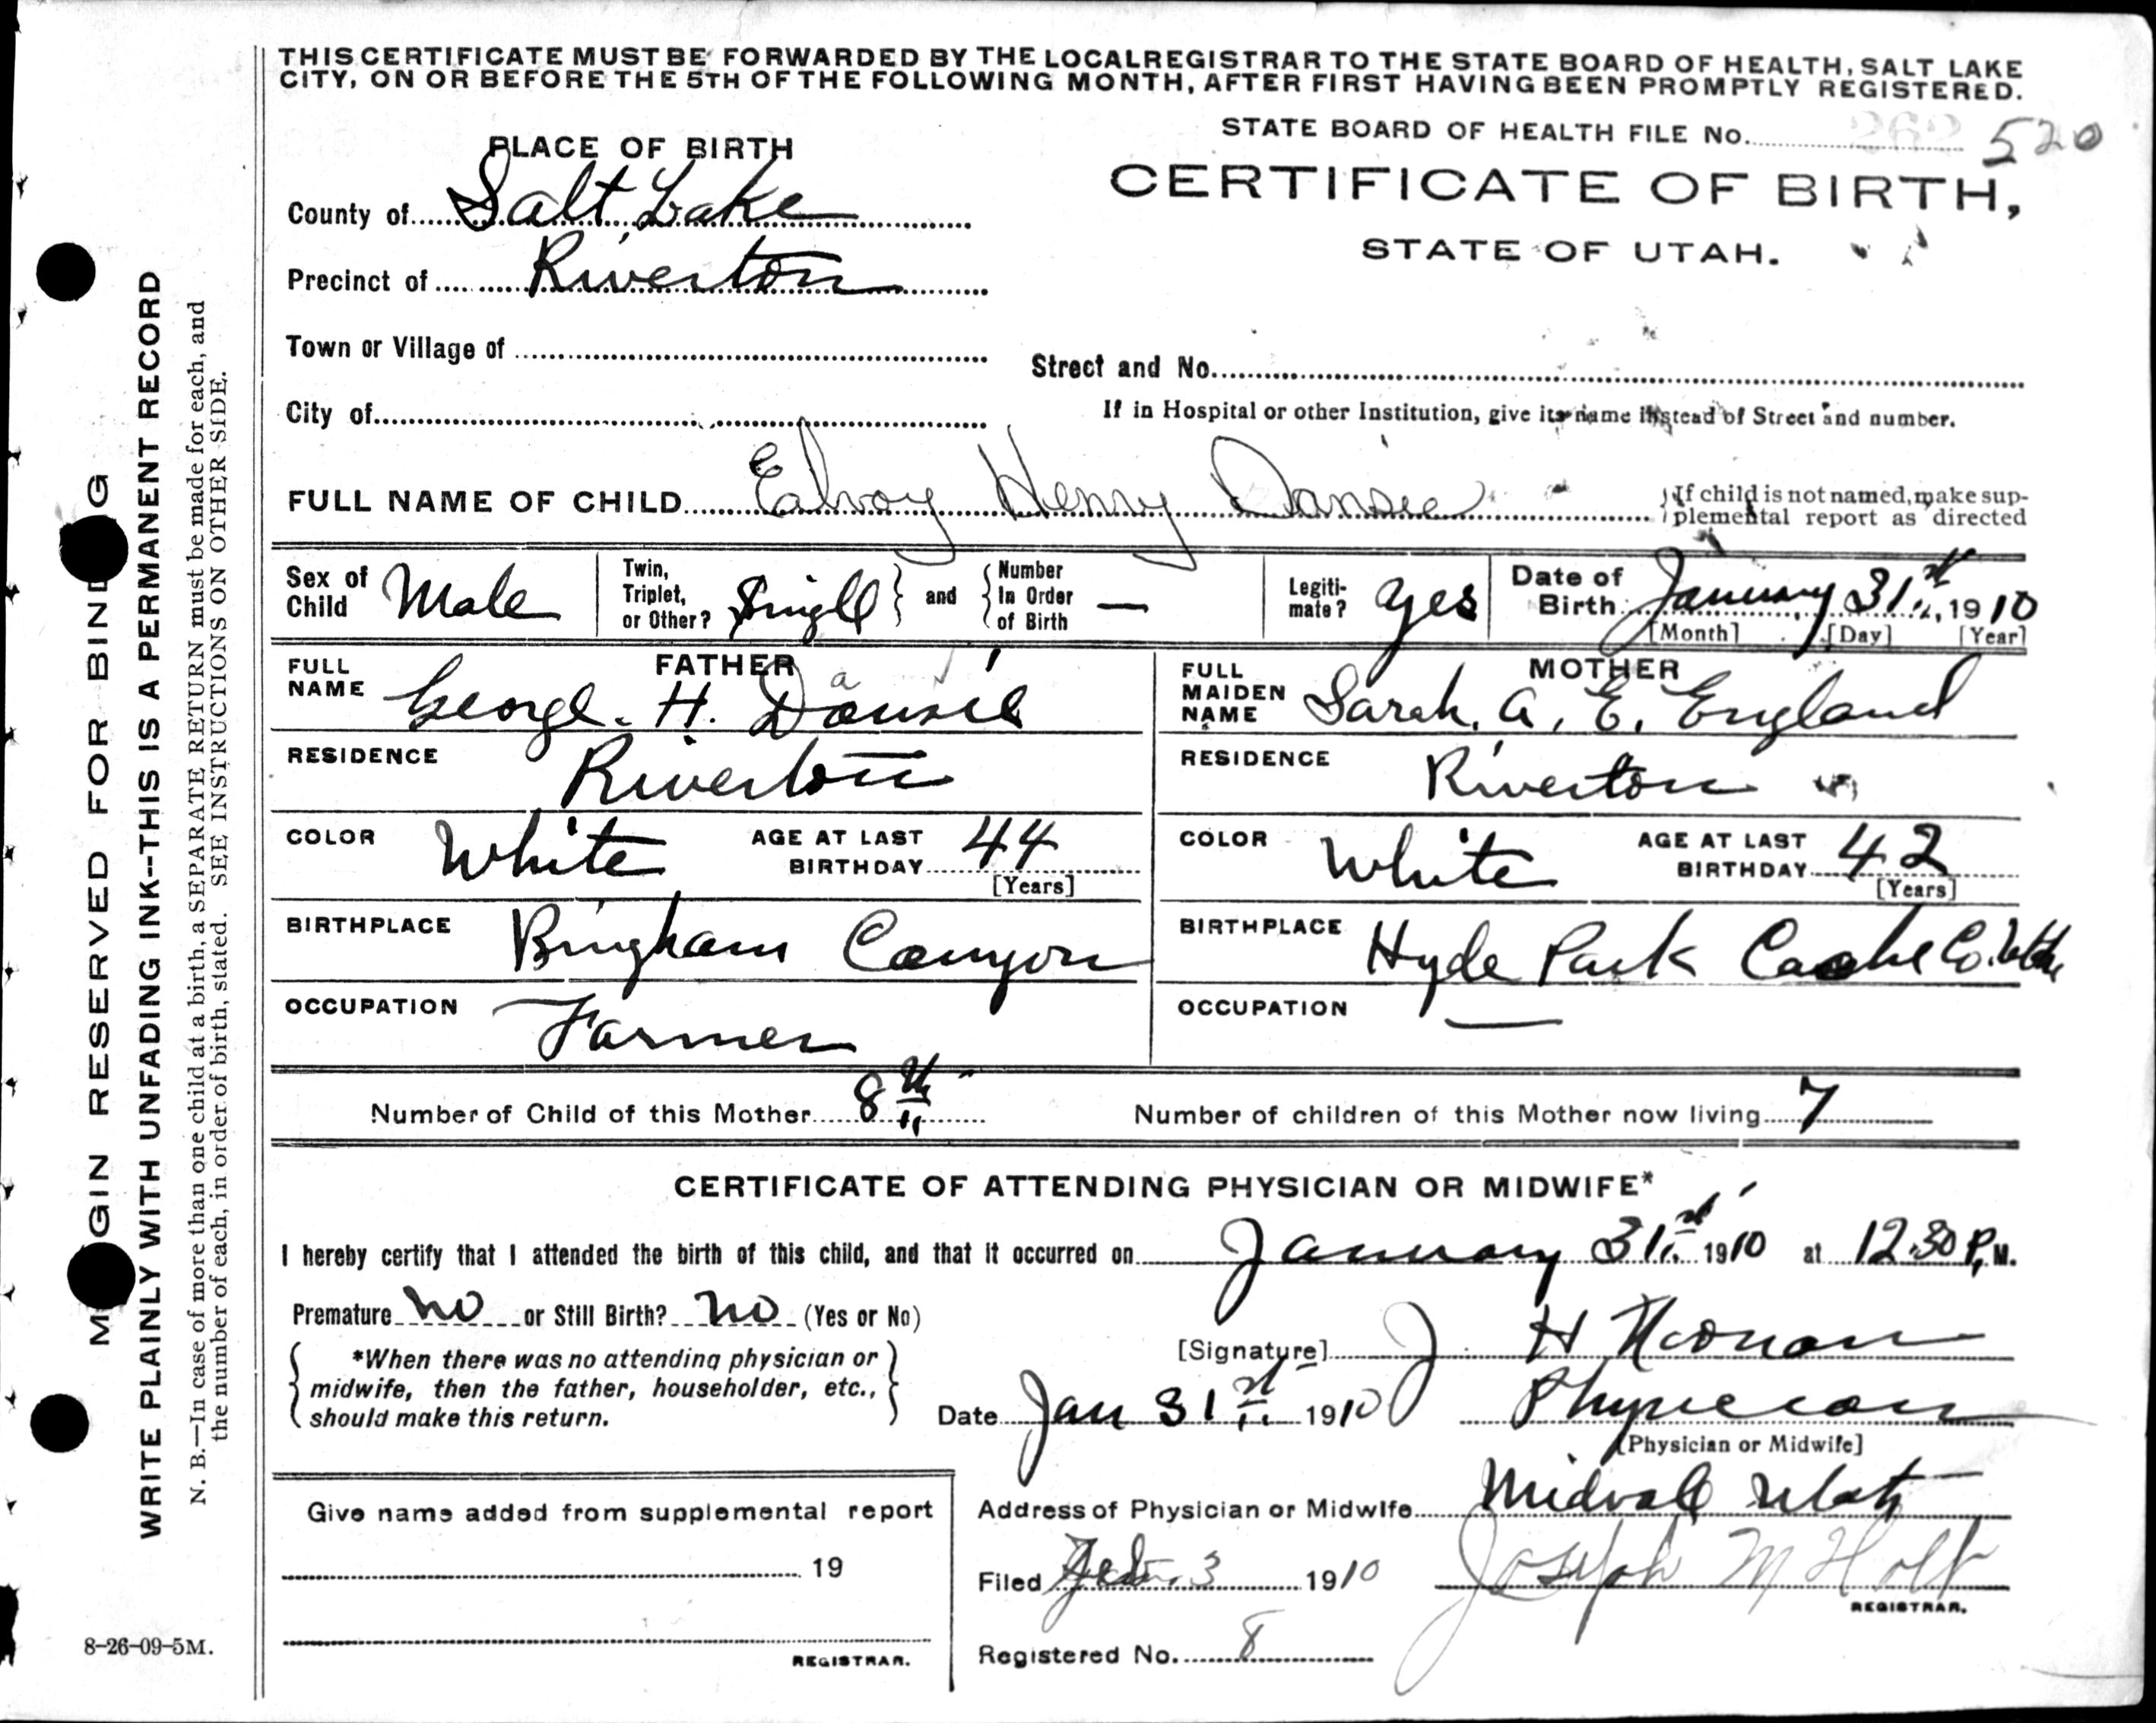 THIS CERTIFICATE MUST BE FORWARDED BY THE LOCAL REGISTRAR TO THE STATE BOARD OF HEALTH, SALT LAKE
CITY, ON OR BEFORE THE 5TH OF THE FOLLOWING MONTH, AFTER FIRST HAVING BEEN PROMPTLY REGISTERED.
STATE BOARD OF HEALTH FILE No. 262 520
PLACE OF BIRTH
CERTIFICATE OF BIRTH,
STATE OF UTAH.
County of Salt Lake
Precinct of Riverton
Town or Village of
Street and No.
City of
If in Hospital or other Institution, give its name instead of Street and number.
FULL NAME OF CHILD Ealvoy Henry Dansie
If child is not named, make sup-
plemental report as directed
Sex of Child Male
Twin, Triplet, or Other? Single and Number In Order of Birth —
Legiti-mate? yes
Date of Birth January 31st, 1910
[Month] [Day] [Year]
FATHER
FULL NAME George. H. Dansie
a
RESIDENCE Riverton
COLOR White AGE AT LAST BIRTHDAY 44
[Years]
BIRTHPLACE Bingham Canyon
OCCUPATION Farmer
MOTHER
FULL MAIDEN NAME Sarah. A. E. England
RESIDENCE Riverton
COLOR White AGE AT LAST BIRTHDAY 42
[Years]
BIRTHPLACE Hyde Park Cache Co. Utah
OCCUPATION —
Number of Child of this Mother 8th
Number of children of this Mother now living 7
CERTIFICATE OF ATTENDING PHYSICIAN OR MIDWIFE*
I hereby certify that I attended the birth of this child, and that it occurred on January 31st 1910 at 12.30 P.M.
Premature no or Still Birth? no (Yes or No)
*When there was no attending physician or
midwife, then the father, householder, etc.,
should make this return.
[Signature] J H Noonan
Date Jan 31st 1910 Physician
[Physician or Midwife]
Give name added from supplemental report
19
REGISTRAR.
Address of Physician or Midwife Midvale Utah
Filed Feb. 3 1910 Joseph M Holt
REGISTRAR.
Registered No. 8
8-26-09-5M.
M GIN RESERVED FOR BIND G
WRITE PLAINLY WITH UNFADING INK--THIS IS A PERMANENT RECORD
N. B.—In case of more than one child at a birth, a SEPARATE RETURN must be made for each, and
the number of each, in order of birth, stated. SEE INSTRUCTIONS ON OTHER SIDE.